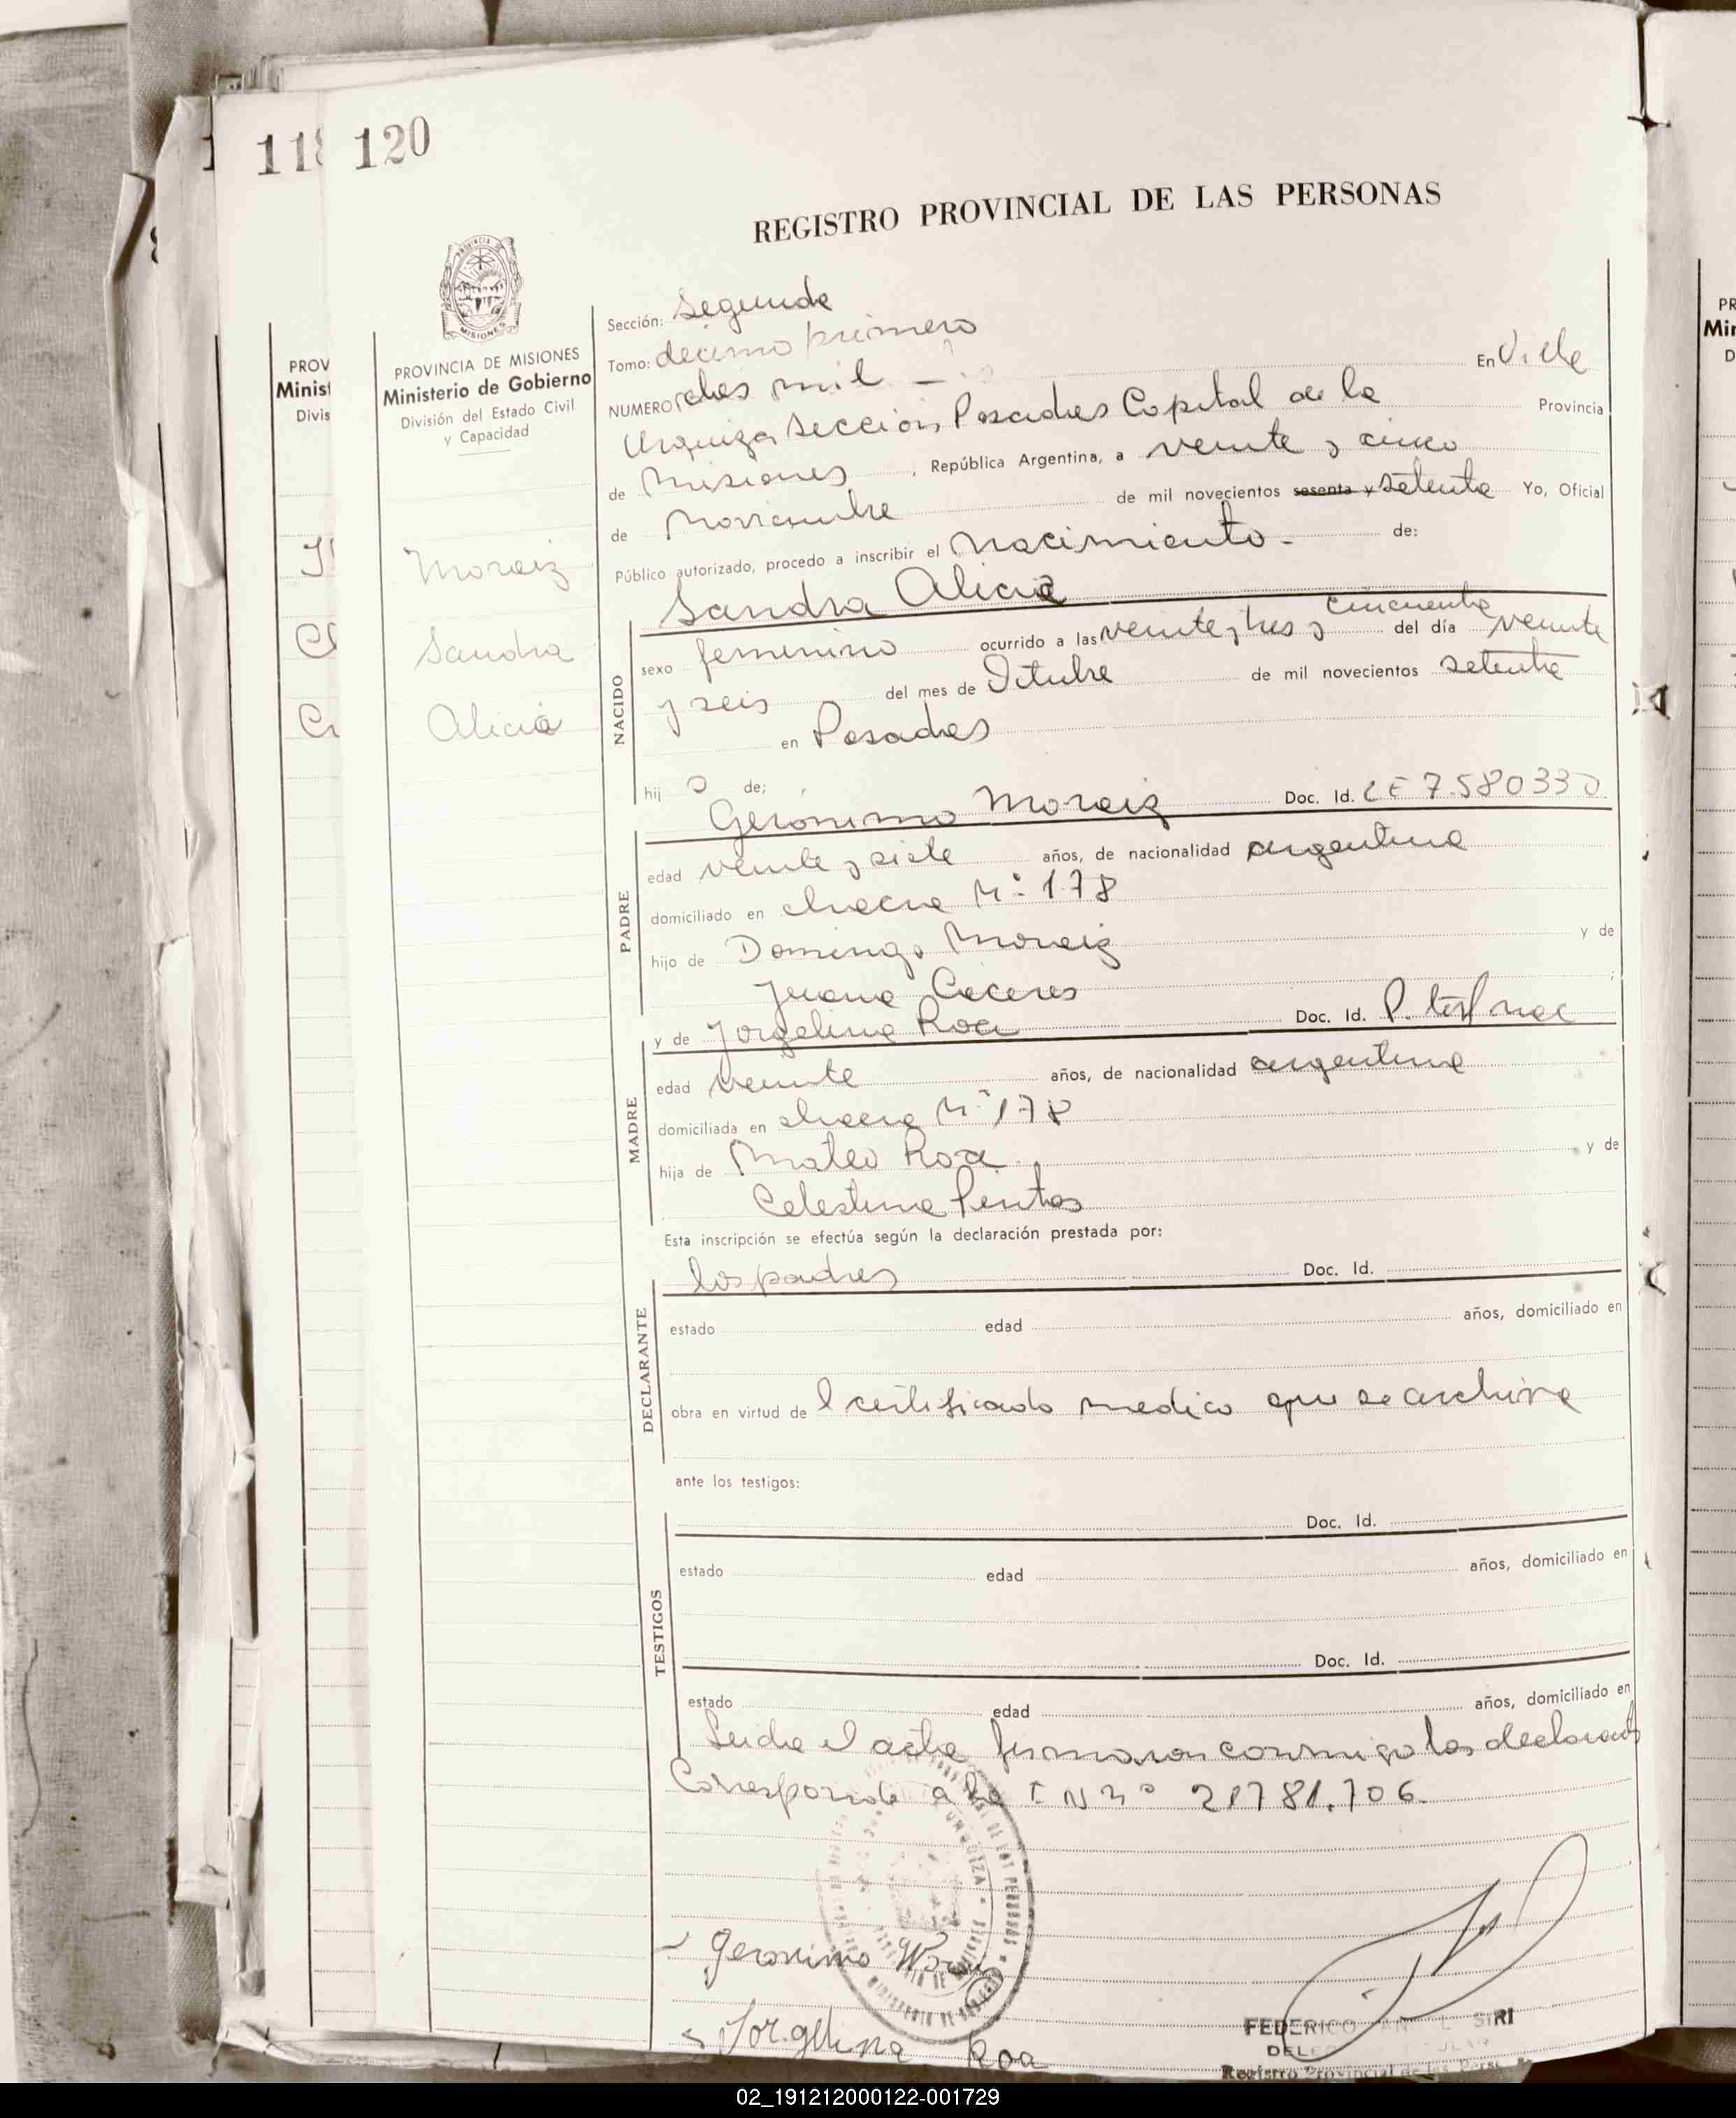 118 120
REGISTRO PROVINCIAL DE LAS PERSONAS
PROVINCIA DE MISIONES
Ministerio de Gobierno
División del Estado Civil
y Capacidad
Moreiz
Sandra
Alicia
Sección: Segunda
Tomo: decimo primero
NUMERO mil — En Villa
Urquiza Seccion Posadas Capital de la Provincia
de Misiones, República Argentina, a veinte y cinco
de Noviembre de mil novecientos sesenta y setenta Yo, Oficial
Público autorizado, procedo a inscribir el Nacimiento.- de:
Sandra Alicia
NACIDO
sexo femenino ocurrido a las veinte y tres y cincuenta del día veinte
y seis del mes de Octubre de mil novecientos setenta
en Posadas
hij o de;
Gerónimo Moreiz Doc. Id. LE 7.580330
PADRE
edad veinte y siete años, de nacionalidad argentina
domiciliado en chacra Nº 178
hijo de Domingo Moreiz y de
Juana Caceres
y de Jorgelina Roa Doc. Id. P. test nac
MADRE
edad veinte años, de nacionalidad argentina
domiciliada en chacra Nº 178
hija de Mateo Roa y de
Celestina Pintos
Esta inscripción se efectúa según la declaración prestada por:
los padres Doc. Id.
DECLARANTE
estado edad años, domiciliado en
obra en virtud del certificado medico que se archiva
ante los testigos:
Doc. Id.
TESTIGOS
estado edad años, domiciliado en
Doc. Id.
estado edad años, domiciliado en
Leida el acta firmaron conmigo los declarant
Corresponde a la I N Nº 21781.706.
Geronimo
Jorgelina Roa
FEDERICO SIRI
Registro Provincial de las Pers
PROV
Minist
Divis
PR
Min
D
02_191212000122-001729